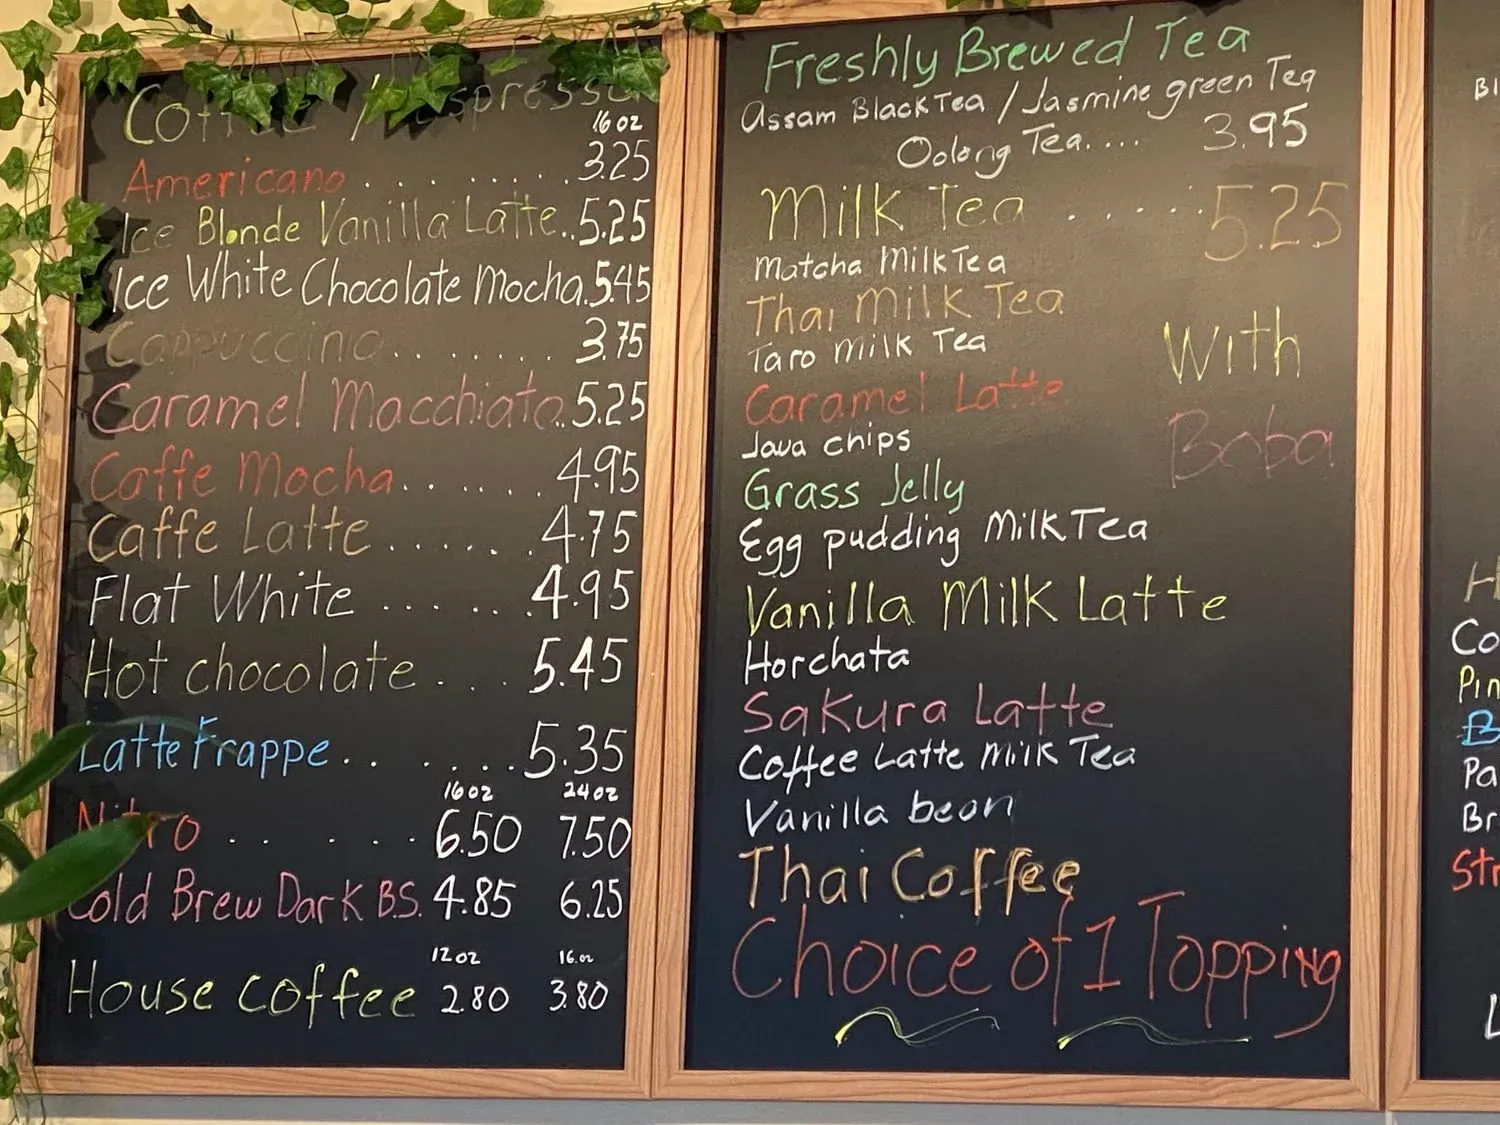 Coffee / Espresso
16 oz
Americano . . . . . . . . . 3.25
Ice Blonde Vanilla Latte..5.25
Ice White Chocolate Mocha.5.45
Cappuccino........ 3.75
Caramel Macchiato..5.25
Caffe Mocha....... 4.95
Caffe Latte....... 4.75
Flat White ....... 4.95
Hot chocolate . . . 5.45
Latte Frappe.. ....5.35
16oz 24oz
Nitro . . . . . 6.50 7.50
Cold Brew Dark B.S. 4.85 6.25
12oz 16.oz
House coffee 2.80 3.80
Freshly Brewed Tea
Assam Black Tea / Jasmine green Tea
Oolong Tea.... 3.95
Milk Tea ...... 5.25
Matcha Milk Tea
Thai Milk Tea
Taro Milk Tea
With
Caramel Latte
Java chips
Boba
Grass Jelly
Egg pudding Milk Tea
Vanilla Milk Latte
Horchata
Sakura Latte
Coffee Latte Milk Tea
Vanilla bean
Thai Coffee
Choice of 1 Topping